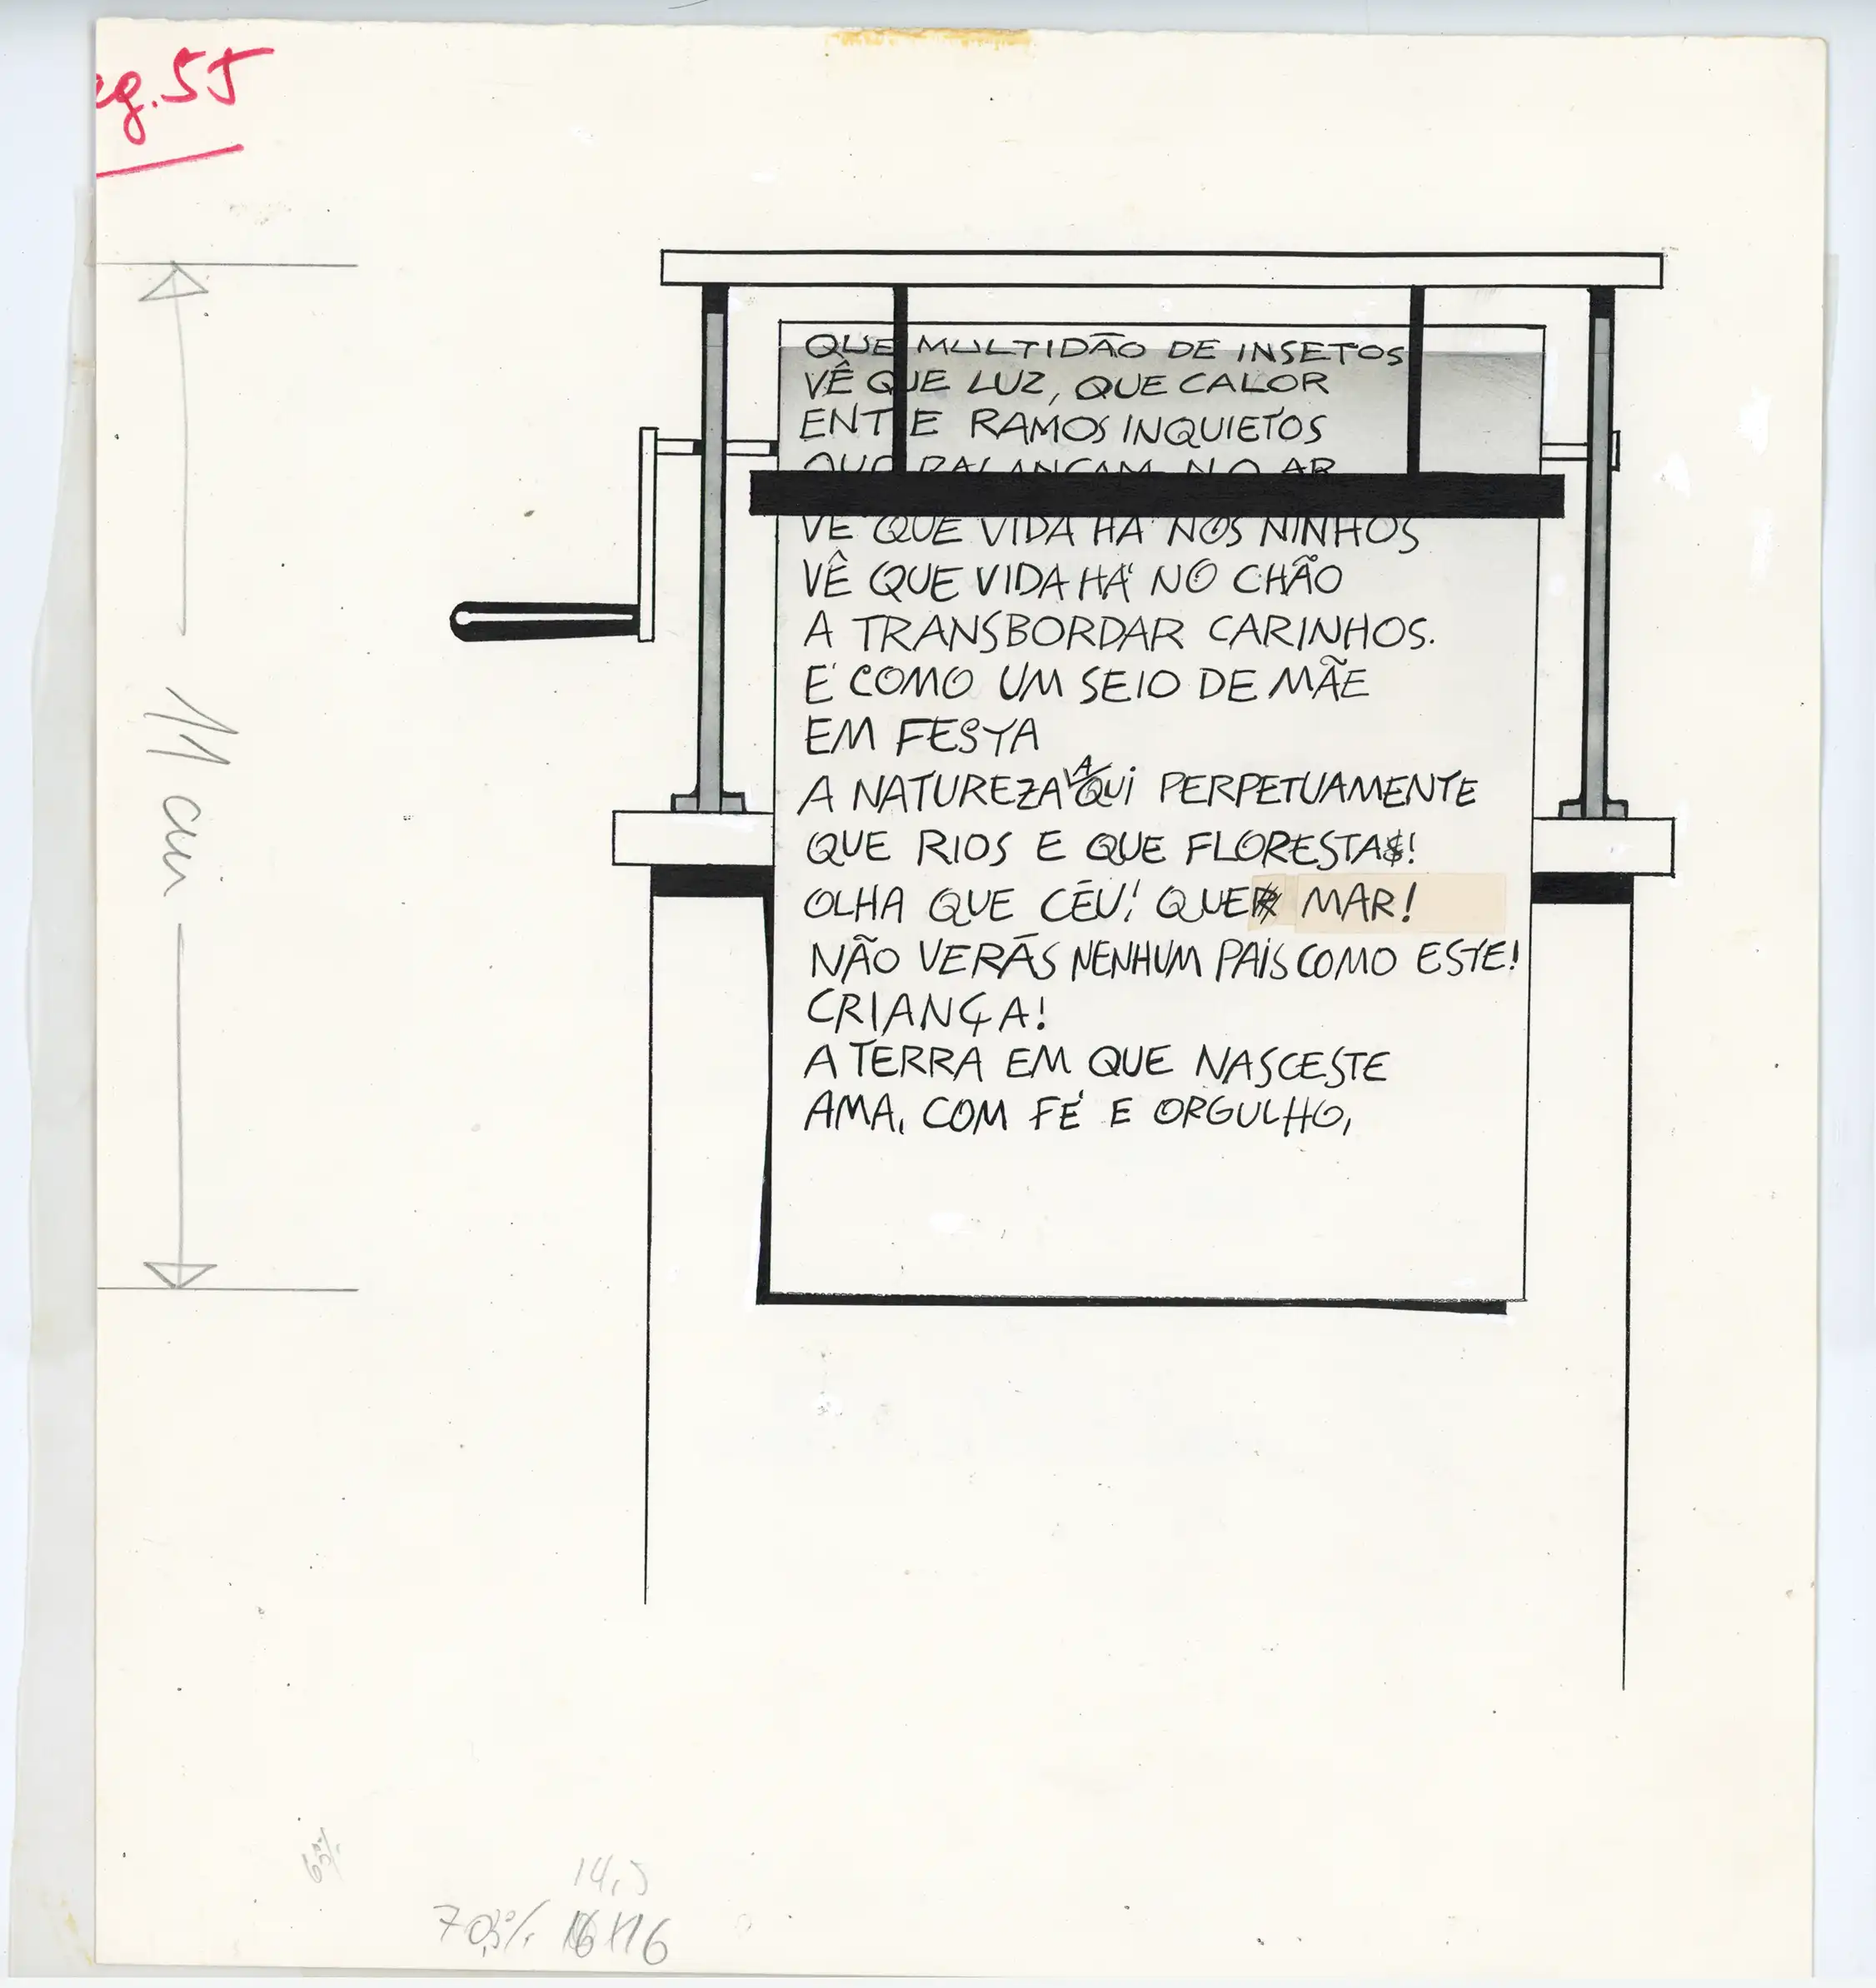 eg. 55
QUE MULTIDÃO DE INSETOS
VÊ QUE LUZ, QUE CALOR
ENTE RAMOS INQUIETOS
QUE BALANÇAM NO AR
VÊ QUE VIDA HÁ NOS NINHOS
VÊ QUE VIDA HÁ NO CHÃO
A TRANSBORDAR CARINHOS.
É COMO UM SEIO DE MÃE
EM FESTA
A NATUREZA AQUI PERPETUAMENTE
QUE RIOS E QUE FLORESTAS!
OLHA QUE CÉU! QUE MAR!
NÃO VERÁS NENHUM PAÍS COMO ESTE!
CRIANÇA!
A TERRA EM QUE NASCESTE
AMA, COM FÉ E ORGULHO,
11 cm
14,5
16